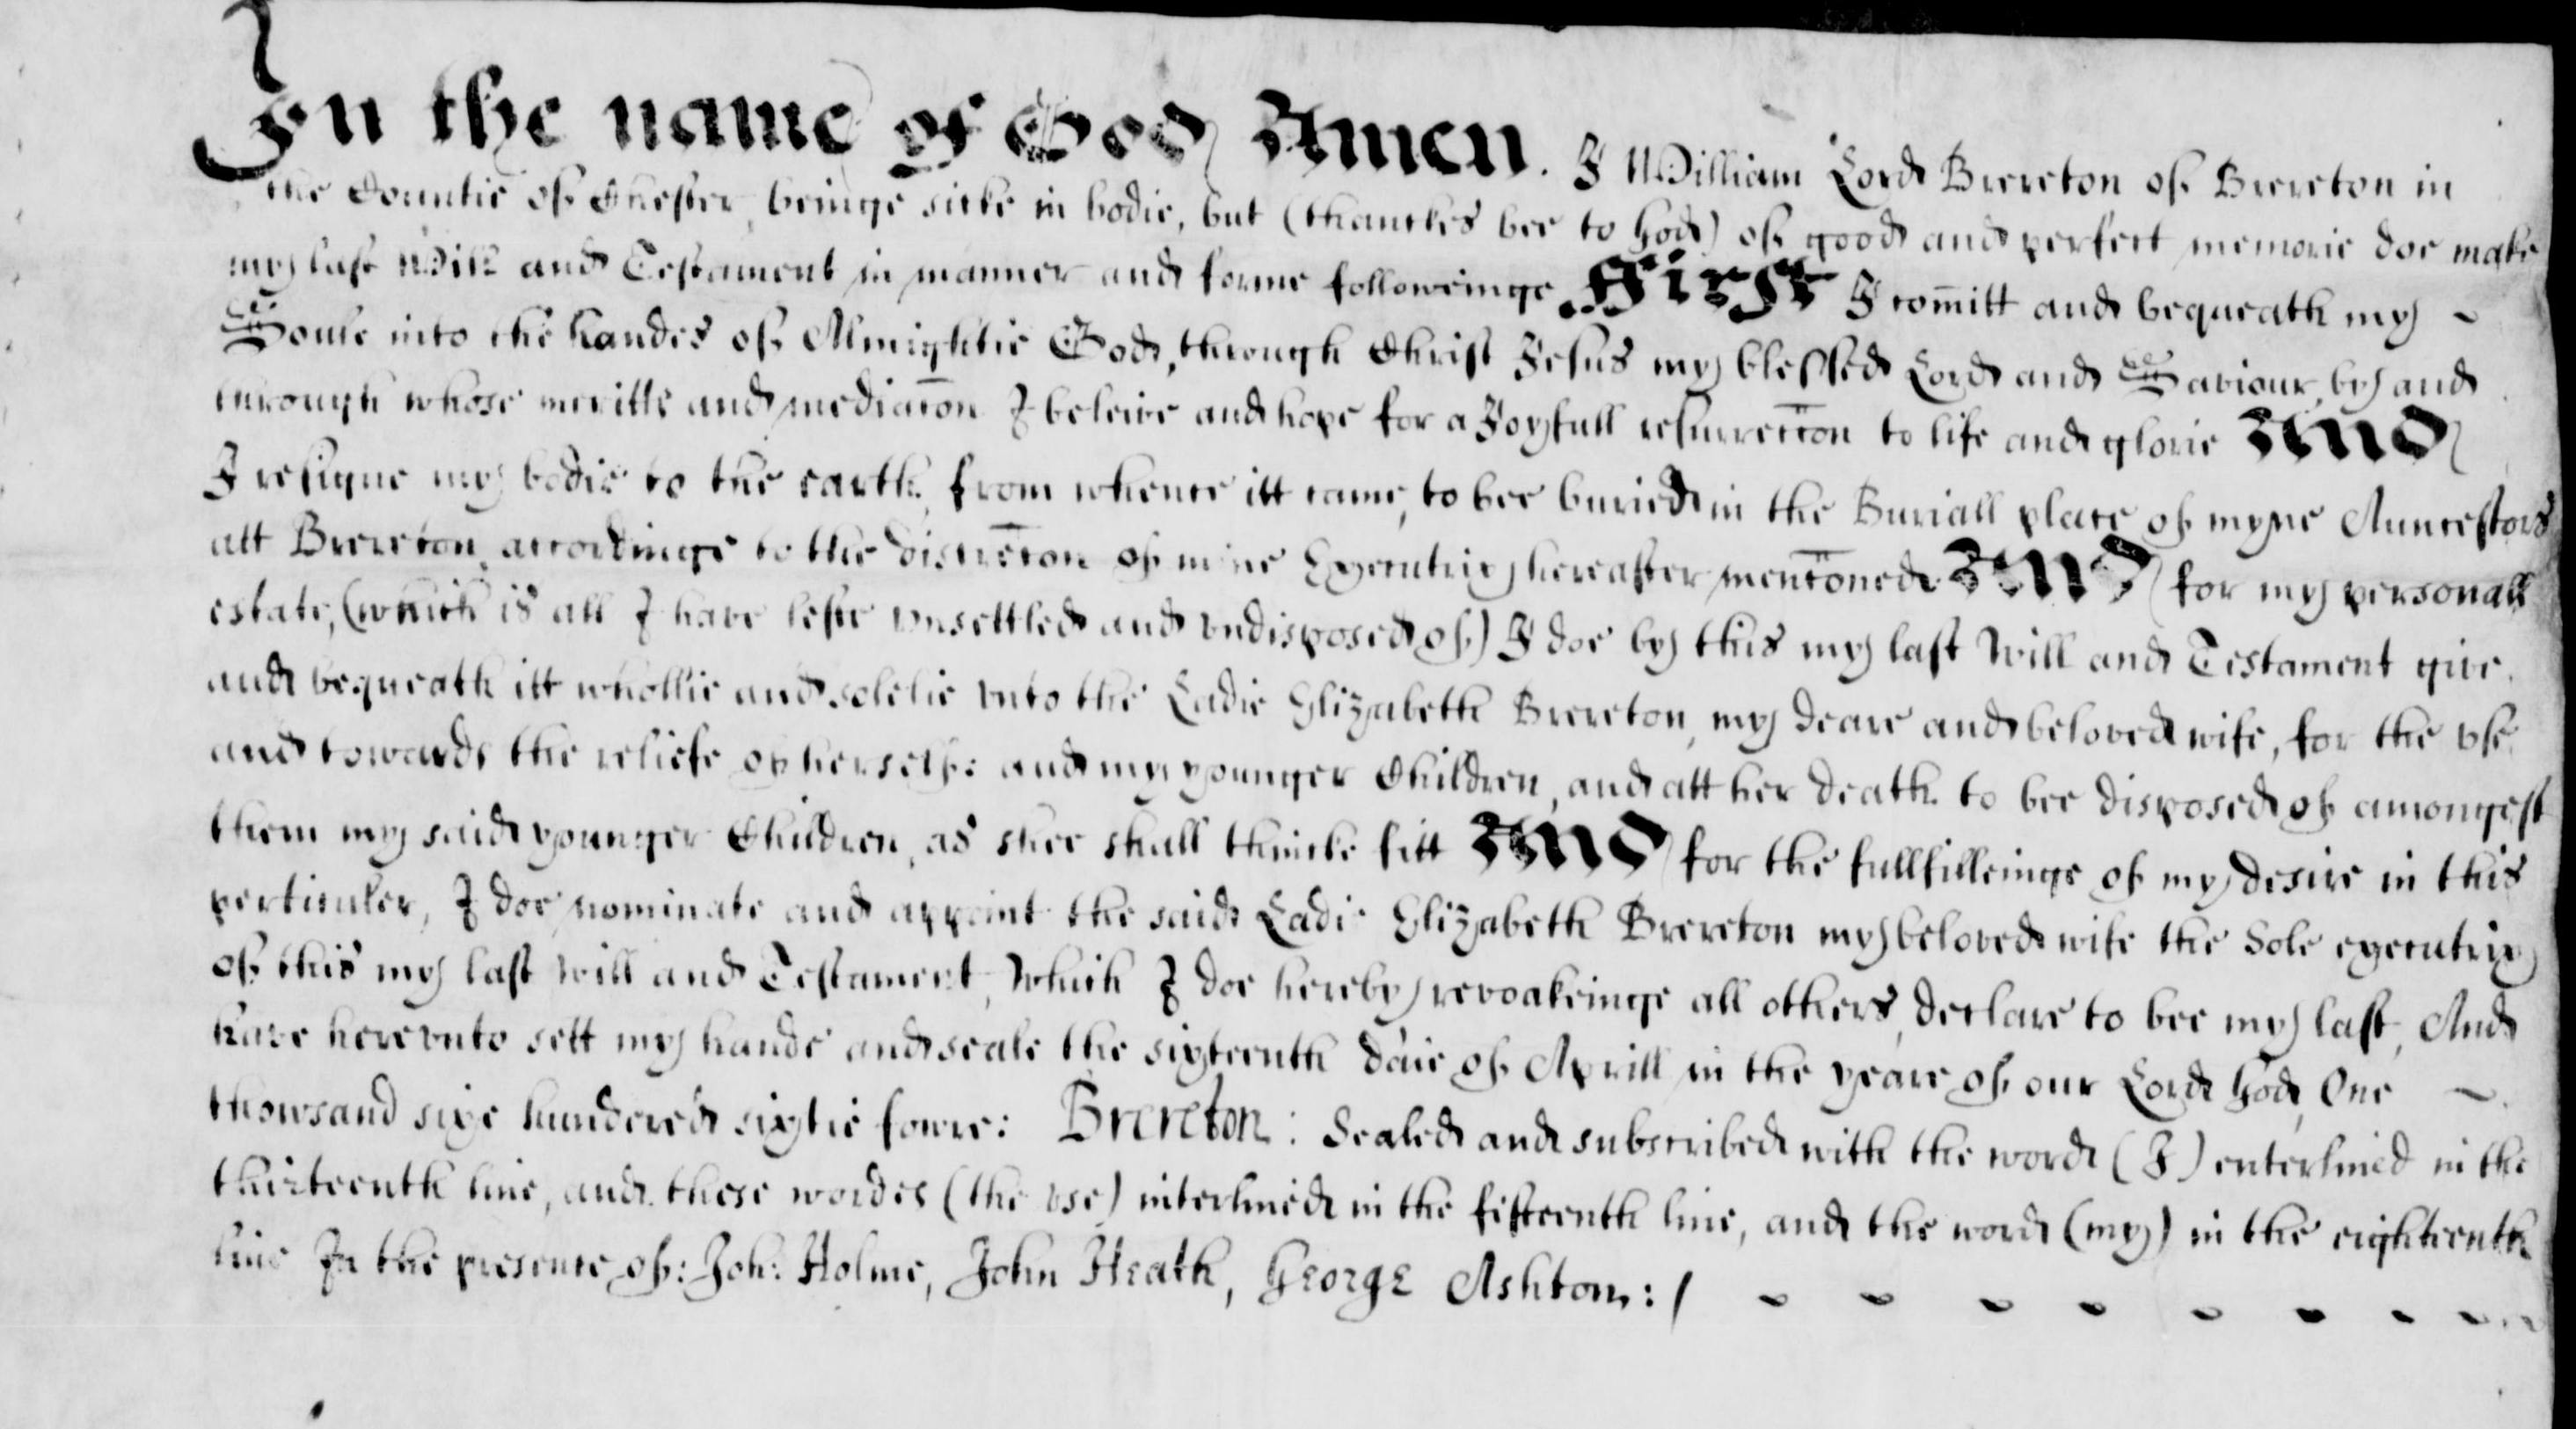 In the name of God Amen. I William Lord Brereton of Brereton in
the Countie of Chester, beinge sicke in bodie, but (thanckes bee to God) of good and perfect memorie doe make
my last Will and Testament in manner and forme followeinge First I com̄itt and bequeath my ~
Soule into the handes of Almightie God, through Christ Jesus my blessed Lord and Saviour, by and
through whose meritts and mediac̄on I beleive and hope for a Joyfull resurrecc̄on to life and glorie And
I resigne my bodie to the earth, from whence itt came, to bee buried in the Buriall place of myne Auncestors
att Brereton accordinge to the discrec̄on of mine Executrix hereafter menc̄oned And for my personall
estate, (which is all I have lefte vnsettled and vndisposed of) I doe by this my last Will and Testament give
and bequeath itt whollie and solelie vnto the Ladie Elizabeth Brereton, my deare and beloved wife, for the vse
and towards the reliefe of herselfe: and my younger Children, and att her death to bee disposed of amongest
them my said younger Children, as shee shall thincke fitt And for the fullfilleinge of my desire in this
perticuler, I doe nominate and appoint the said Ladie Elizabeth Brereton my beloved wife the Sole executrix
of this my last Will and Testament, Which I doe hereby revoakeinge all others, declare to bee my last, And
have herevnto sett my hande and seale the sixteenth daie of Aprill in the yeare of our Lord God, One ~
thowsand sixe hundered sixtie fowre: Brereton: Sealed and subscribed with the word (I) enterlined in the
thirteenth line, and these wordes (the vse) interlined in the fifteenth line, and the word (my) in the eighteenth
line In the presence of: Joh: Holme, John Heath, George Ashton: /